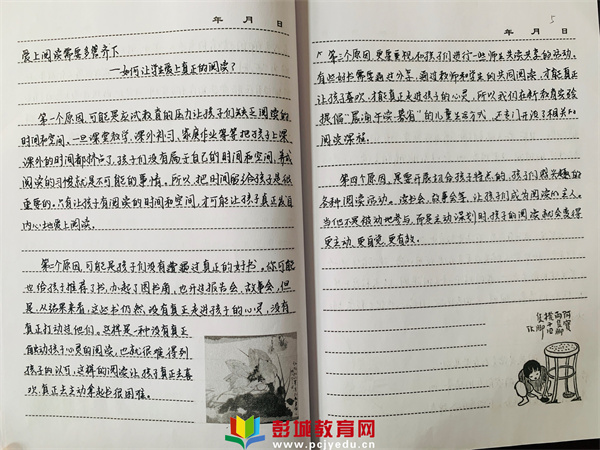 年 月 日
爱上阅读需要多管齐下
——如何让学生爱上真正的阅读？
第一个原因，可能是应试教育的压力让孩子们缺乏阅读的
时间和空间。一旦课堂教学、课外补习、家庭作业等等把孩子上课、
课外的时间都挤占了，孩子们没有属于自己的时间和空间，养成
阅读的习惯就是不可能的事情。所以，把时间还给孩子是很
重要的。只有让孩子有阅读的时间和空间，才可能让孩子真正发自
内心地爱上阅读。
第二个原因，可能是孩子们没有遭遇过真正的好书。你可能
也给孩子推荐了书，办起了图书角，也开过报告会、故事会，但
是，从结果来看，这些书仍然没有真正走进孩子的心灵，没有
真正打动过他们。这样是一种没有真正
触动孩子心灵的阅读，也就很难得到
孩子的认可，这样的阅读让孩子真正去喜
欢、真正去主动拿起书很困难。
年 月 日
5
第三个原因，更要重视和孩子们进行一些师生共读共享的活动。
有些好书需要通过分享，通过教师和学生的共同阅读，才能真正
让孩子喜欢，才能真正走进孩子的心灵，所以我们在新教育实验
提倡“晨诵午读暮省”的儿童生活方式，还专门开设了相关的
阅读课程。
第四个原因，是要开展切合孩子特点的、孩子们感兴趣的
各种阅读活动。读书会，故事会等，让孩子们成为阅读的主人。
当他不是被动地参与，而是主动谋划时，孩子的阅读就会变得
更主动、更自觉、更有效。
彭城教育网
www.pcjyedu.cn